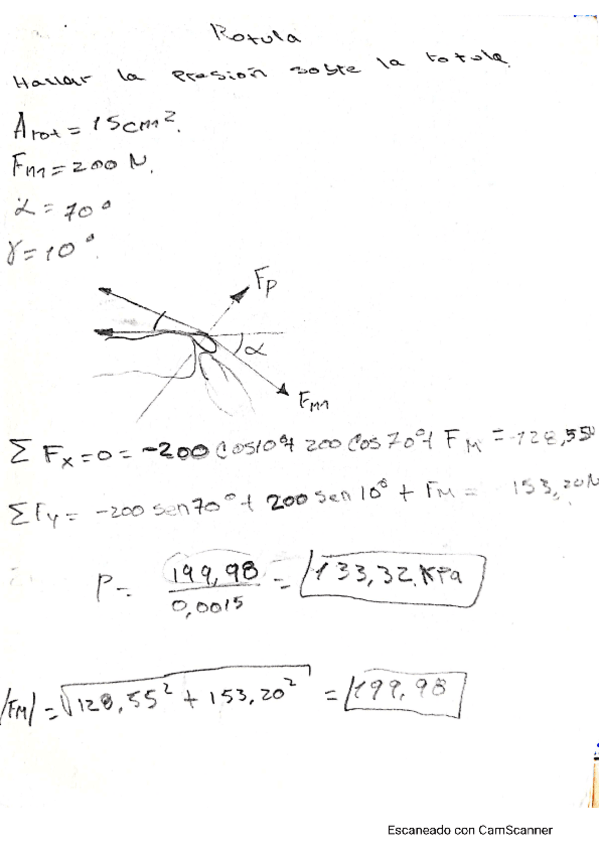 Rotula
Hallar la Presión sobre la rotula.
Arot = 15cm².
Fm = 200 N.
α = 70°
γ = 10°.
Fp
α
Fm
Σ Fx = 0 = -200 Cos10° + 200 Cos 70° + FM = -128,55
ΣFy = -200 sen70° + 200 sen 10° + FM = 153,20N
P = 199,98 / 0,0015 = 133,32 KPa
|FM| = √128,55² + 153,20² = 199,98
Escaneado con CamScanner